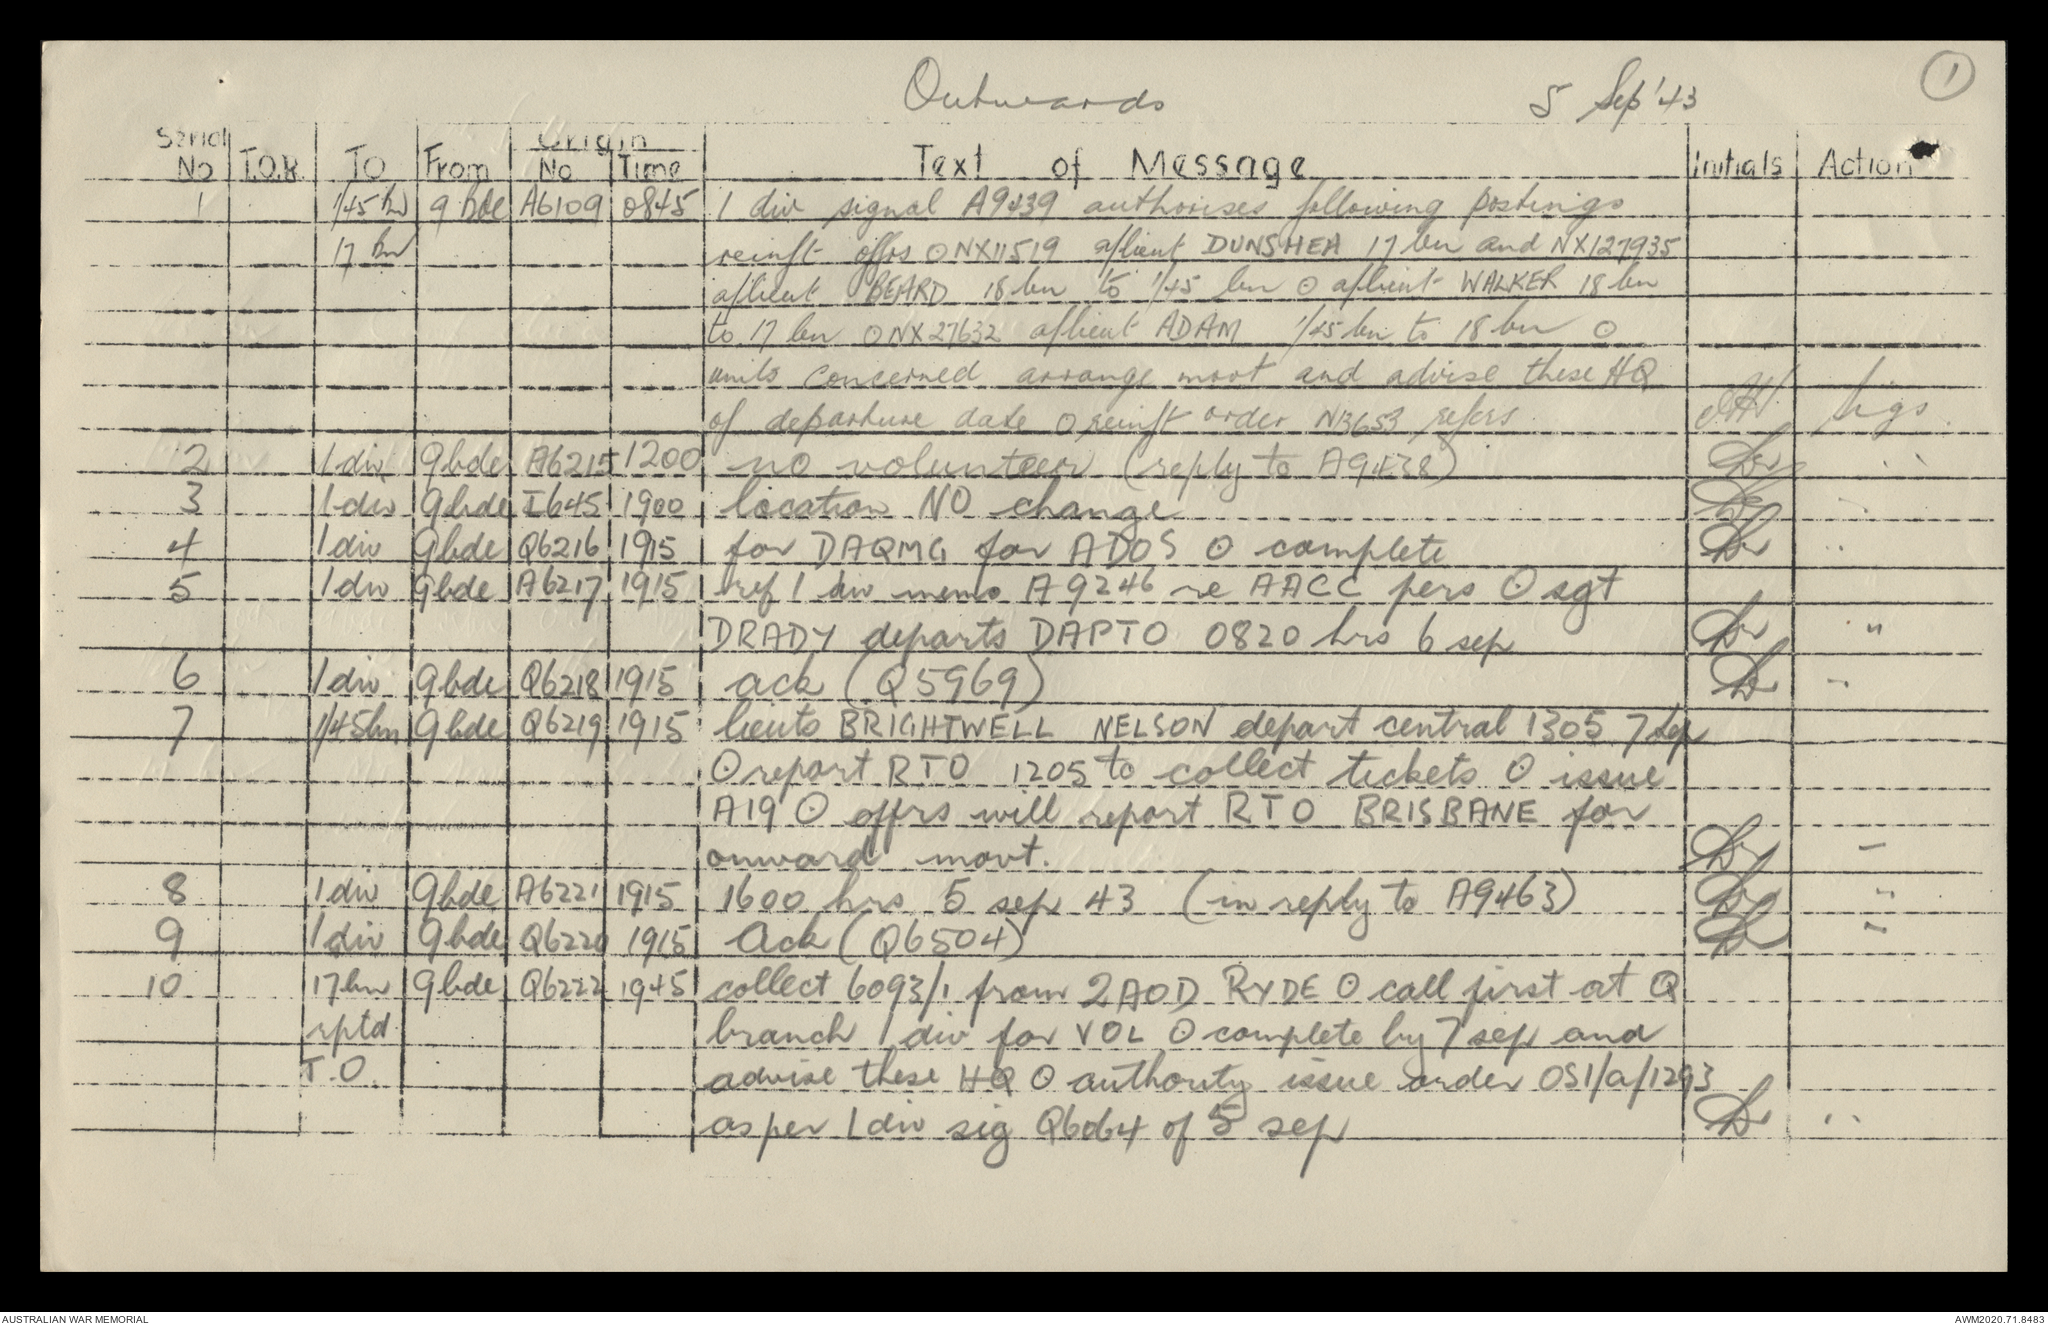 1
Outwards 5 Sep '43
Serial No T.O.R. TO From Origin No Time Text of Message Initials Action
1 1/45 bn 9 bde A6109 0845 1 div signal A9439 authorises following postings
17 bn reinft offrs ⊙ NX11519 a/lieut DUNSHEA 17 bn and NX127935
a/lieut BEARD 18 bn to 1/45 bn ⊙ a/lieut WALKER 18 bn
to 17 bn ⊙ NX27632 a/lieut ADAM 1/45 bn to 18 bn ⊙
units concerned arrange movt and advise these HQ
of departure date ⊙ reinft order N13653 refers sigs
2 1 div 9 bde A6215 1200 no volunteer (reply to A9438) "
3 1 div 9 bde I645 1900 location NO change "
4 1 div 9 bde Q6216 1915 for DAQMG for ADOS ⊙ complete "
5 1 div 9 bde A6217 1915 ref 1 div memo A9246 re AACC pers ⊙ sgt
DRADY departs DAPTO 0820 hrs 6 sep "
6 1 div 9 bde Q6218 1915 ack (Q5969) "
7 1/45 bn 9 bde Q6219 1915 lieuts BRIGHTWELL NELSON depart central 1305 7 Sep
⊙ report RTO 1205 to collect tickets ⊙ issue
A19 ⊙ offrs will report RTO BRISBANE for
onward movt. "
8 1 div 9 bde A6221 1915 1600 hrs 5 sep 43 (in reply to A9463) "
9 1 div 9 bde Q6220 1915 Ack (Q6504) "
10 17 bn 9 bde Q6222 1945 collect 6093/1 from 2AOD RYDE ⊙ call first at Q
rptd branch 1 div for VOL ⊙ complete by 7 sep and
T.O. advise these HQ ⊙ authority issue order OS1/a/1293
as per 1 div sig Q6064 of 5 sep "
AUSTRALIAN WAR MEMORIAL AWM2020.71.8483